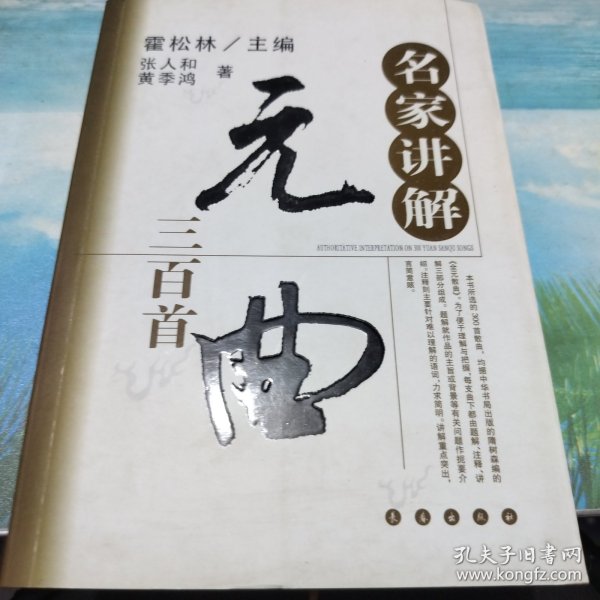 霍松林/主编
张人和
黄季鸿 著
名家讲解
元曲
三百首
AUTHORITATIVE INTERPRETATION ON 300 YUAN SANQU SONGS
本书所选的300首散曲,均据中华书局出版的隋树森编的
《全元散曲》。为了便于理解与把握,每支曲下都由题解、注释、讲
解三部分组成。题解就作品的主旨或背景等有关问题作扼要介
绍。注释则主要针对难以理解的语词,力求简明。讲解重点突出,
言简意赅。
长春出版社
孔夫子旧书网
www.kongfz.com